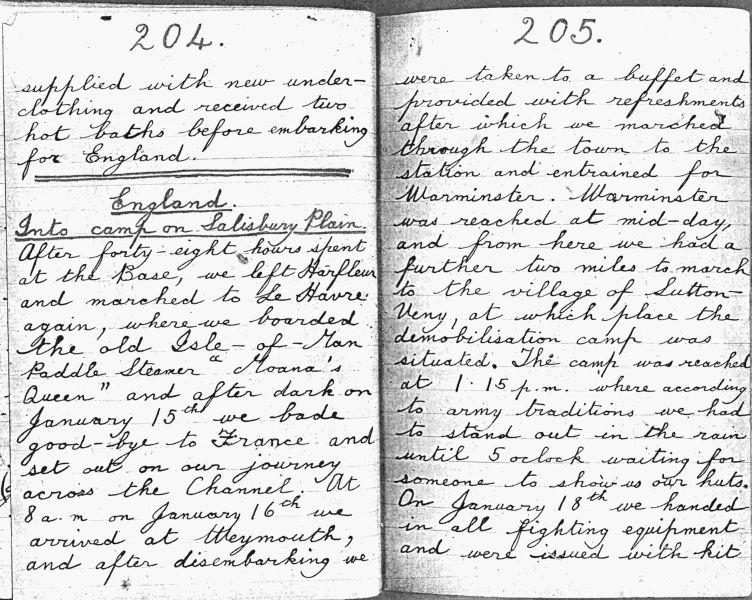 204.
supplied with new under-
clothing and received two
hot baths before embarking
for England.
England.
Into camp on Salisbury Plain.
After forty-eight hours spent
at the Base, we left Harfleur
and marched to Le Havre
again, where we boarded
the old Isle-of-Man
Paddle Steamer "Moana's
Queen" and after dark on
January 15th we bade
good-bye to France and
set out on our journey
across the Channel. At
8 a.m on January 16th we
arrived at Weymouth,
and after disembarking we
205.
were taken to a buffet and
provided with refreshments
after which we marched
through the town to the
station and entrained for
Warminster. Warminster
was reached at mid-day,
and from here we had a
further two miles to march
to the village of Sutton-
Veny, at which place the
demobilisation camp was
situated. The camp was reached
at 1.15 p.m. where according
to army traditions we had
to stand out in the rain
until 5 oclock waiting for
someone to show us our huts.
On January 18th we handed
in all fighting equipment
and were issued with kit